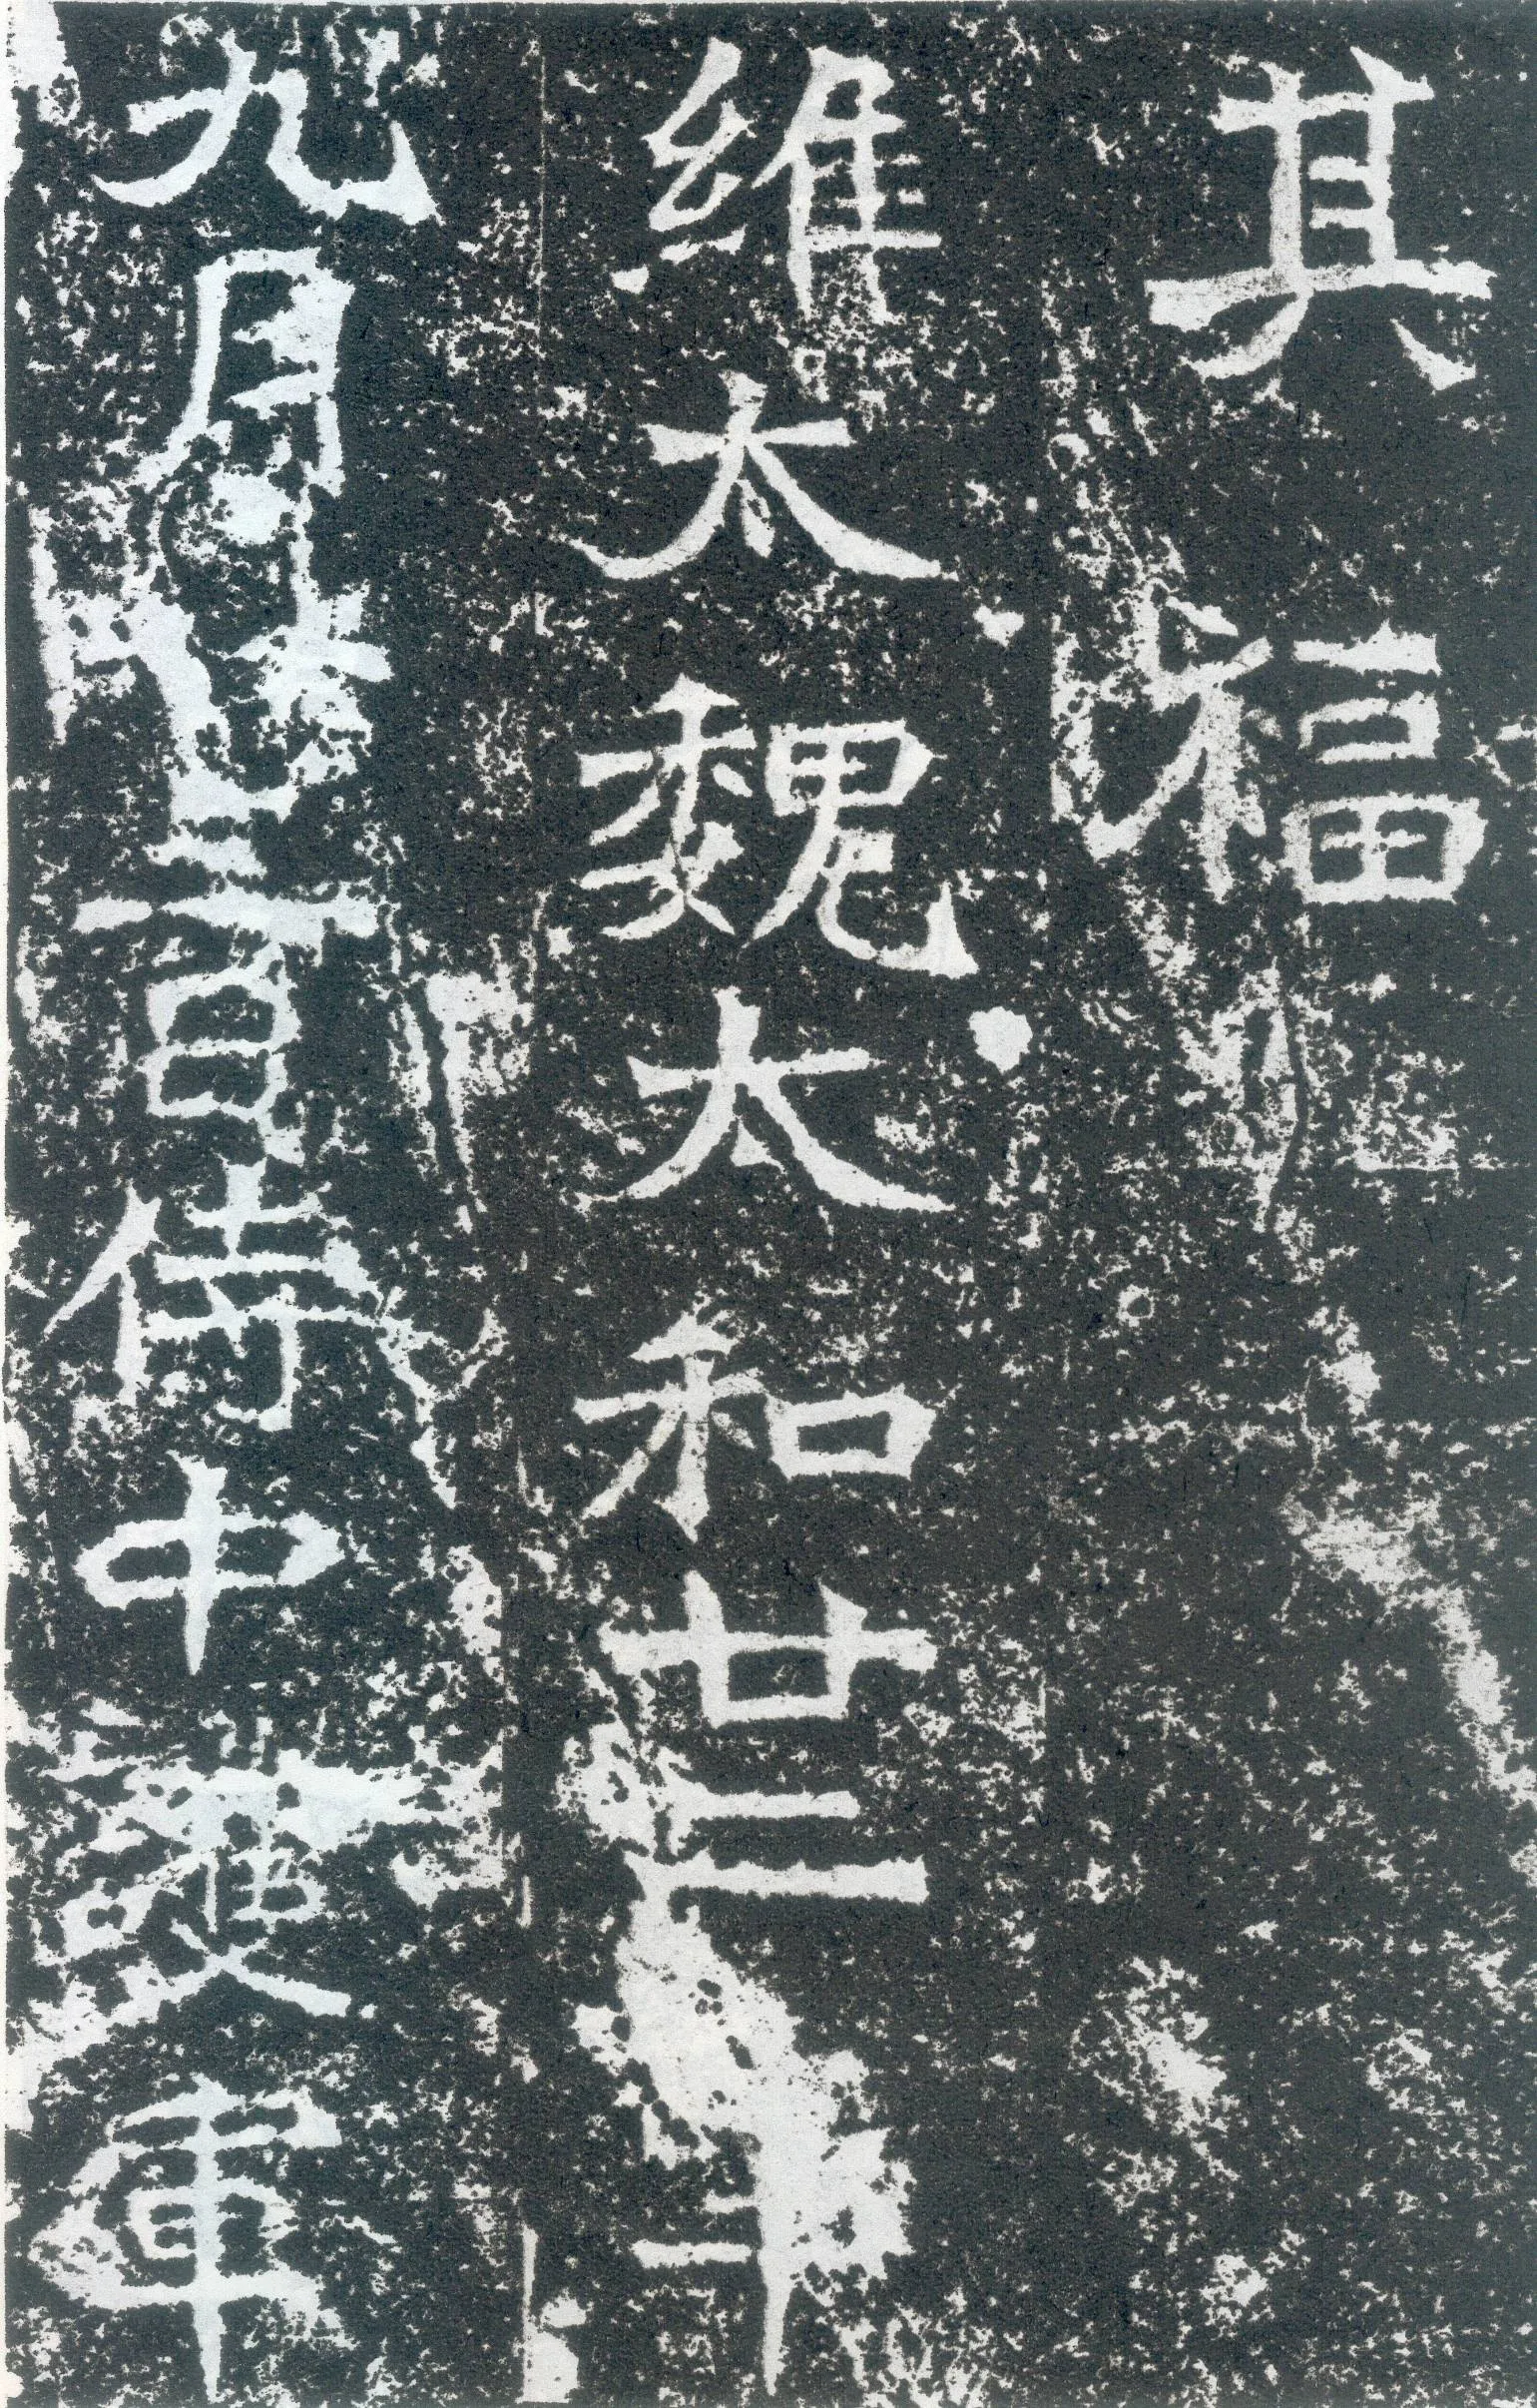 其福
維太魏太和廿二年
九月廿三日侍中護軍